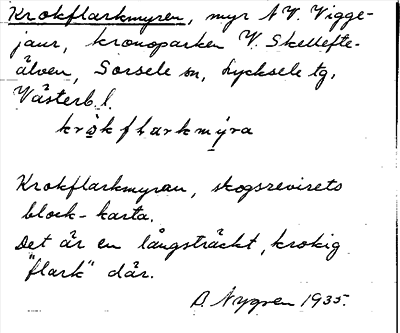 Krokflarkmyren, myr N.V. Vigge-
jaur, kronoparken V. Skellefte-
älven, Sorsele sn, Lycksele tg,
Västerb. l.
krokflarkmyra
Krokflarkmyran, skogsrevirets
block-karta.
Det är en långsträckt, krokig
"flark" där.
A. Nygren 1935.